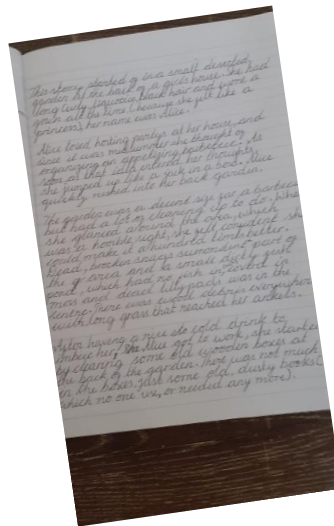 This story started of in a small deserted
garden at the back of a girls house. She had
long curly, luxurious, black hair and wore a
gown all the time (because she felt like a
princess), her name was Alice.
Alice loved hosting partys at her house, and
since it was midsummer she thought of
organizing an appetizing barbecue. As
soon as that idea entered her thoughts,
she jumped up like a jack in a box. Alice
quickly rushed into her back garden.
The garden was a decent size for a barbecue
but had a lot of cleaning up to do. When
she glanced around the area, which
was a horrible sight, she felt confident she
could make it a hundred times better.
Dead, broken twigs surrounded part of
the area and a small ducky
pond, which had no fish in, coverd in
moss and dead lilypads was in the
centre. There was weeds
everywhere
with long grass that reached her ankels.
After having a nice ice cold drink to
her, Alice got to work, she started
by clearing some old wooden boxes at
the back of the garden. There was not much
in the boxes, just some old, dusty books
which no one use, or needed any more).